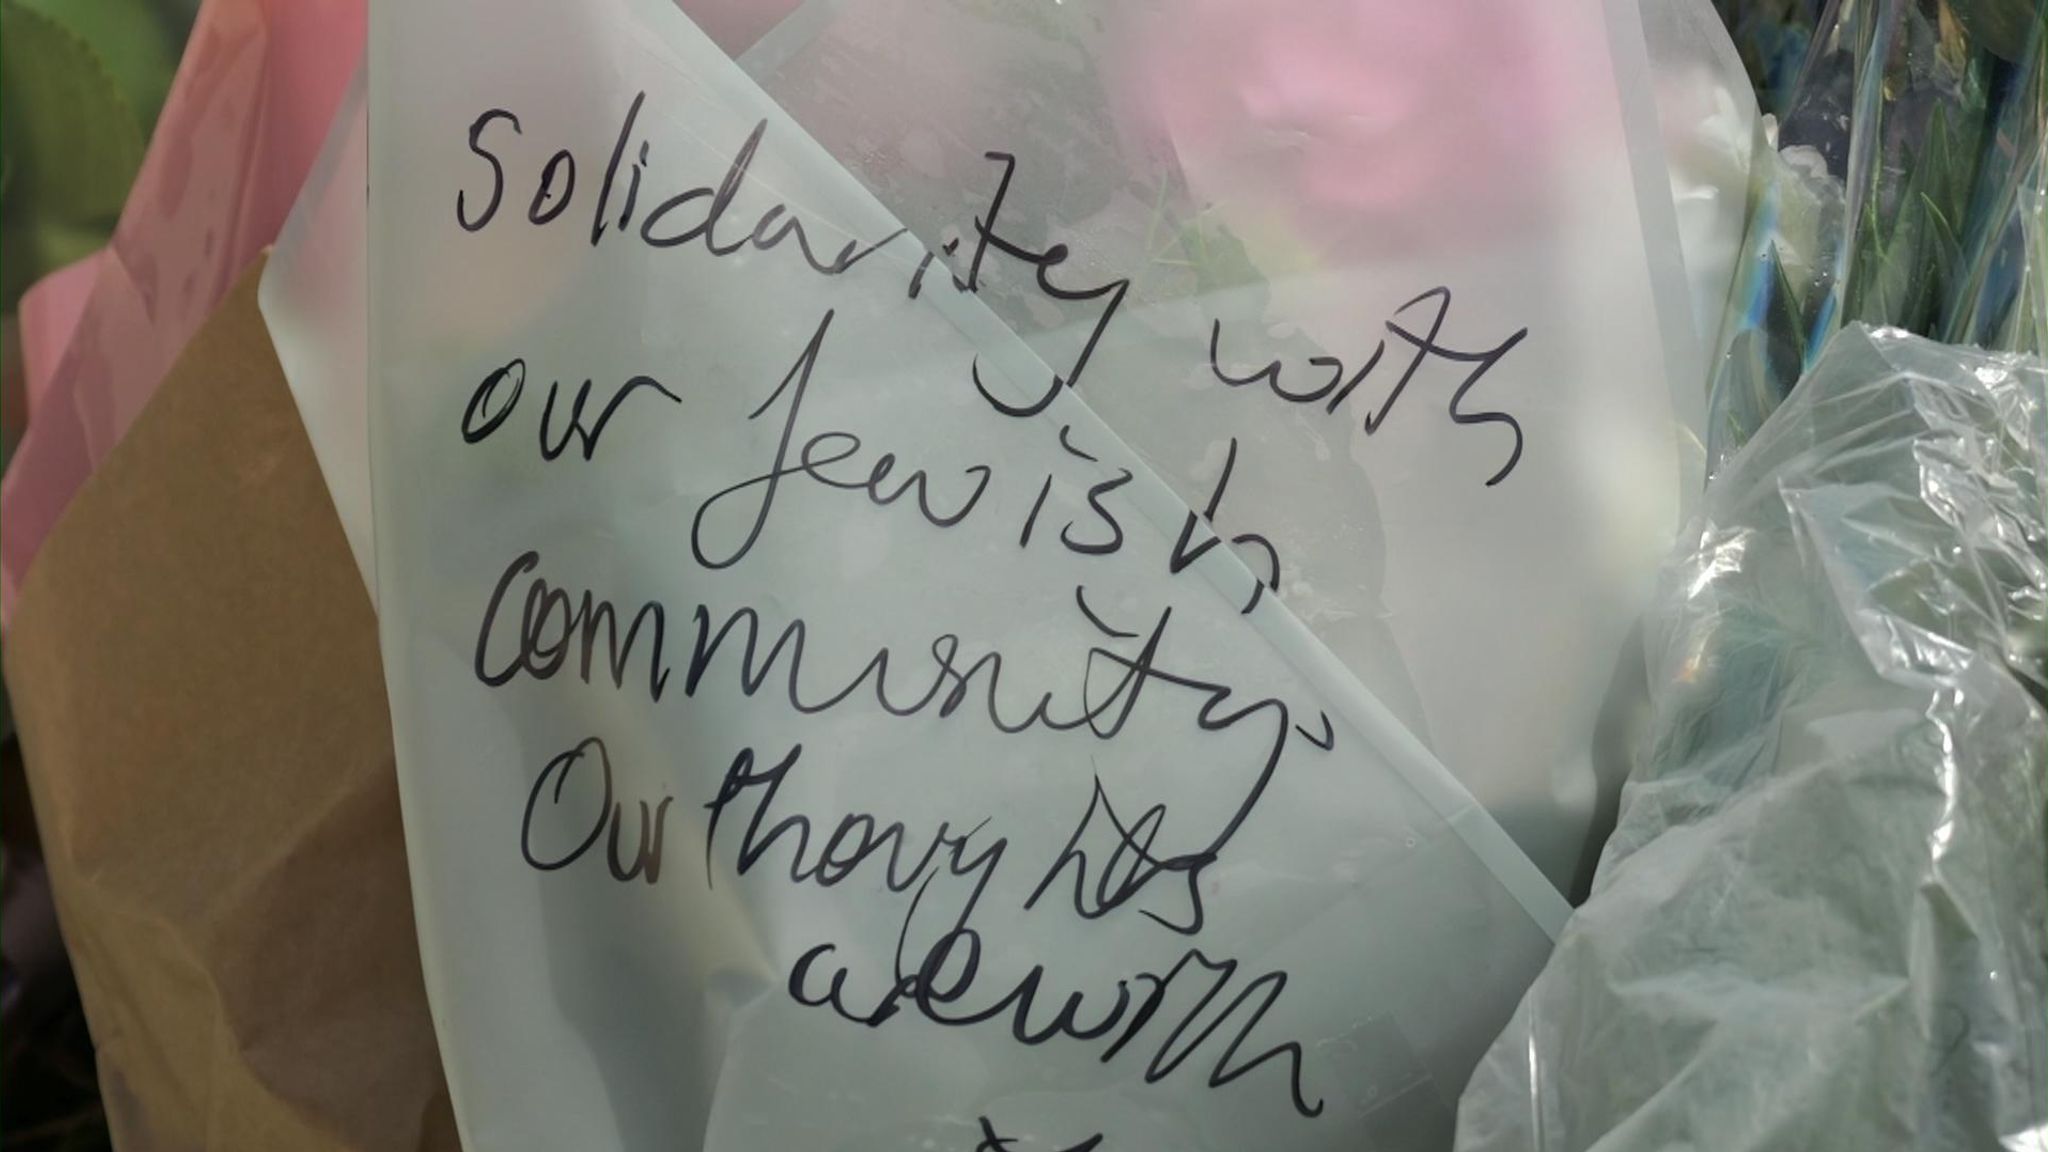 Solidarity with
our Jewish
community.
Our thoughts
are with